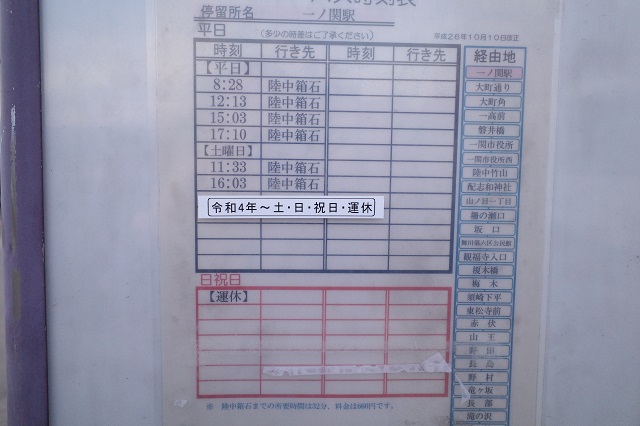 停留所名 一ノ関駅
平日 (多少の時差はご了承ください) 平成26年10月10日改正
時刻 行き先 時刻 行き先
【平日】
8:28 陸中箱石
12:13 陸中箱石
15:03 陸中箱石
17:10 陸中箱石
【土曜日】
11:33 陸中箱石
16:03 陸中箱石
令和4年～土・日・祝日・運休
日祝日
【運休】
※ 陸中箱石までの所要時間は32分、料金は660円です。
経由地
一ノ関駅
大町通り
大町角
一高前
磐井橋
一関市役所
一関市役所西
陸中竹山
配志和神社
山ノ目一丁目
坂口
観福寺入口
榎木橋
梅木
須崎下平
東松寺前
赤伏
山王
野村
竜ヶ坂
長部
滝の沢